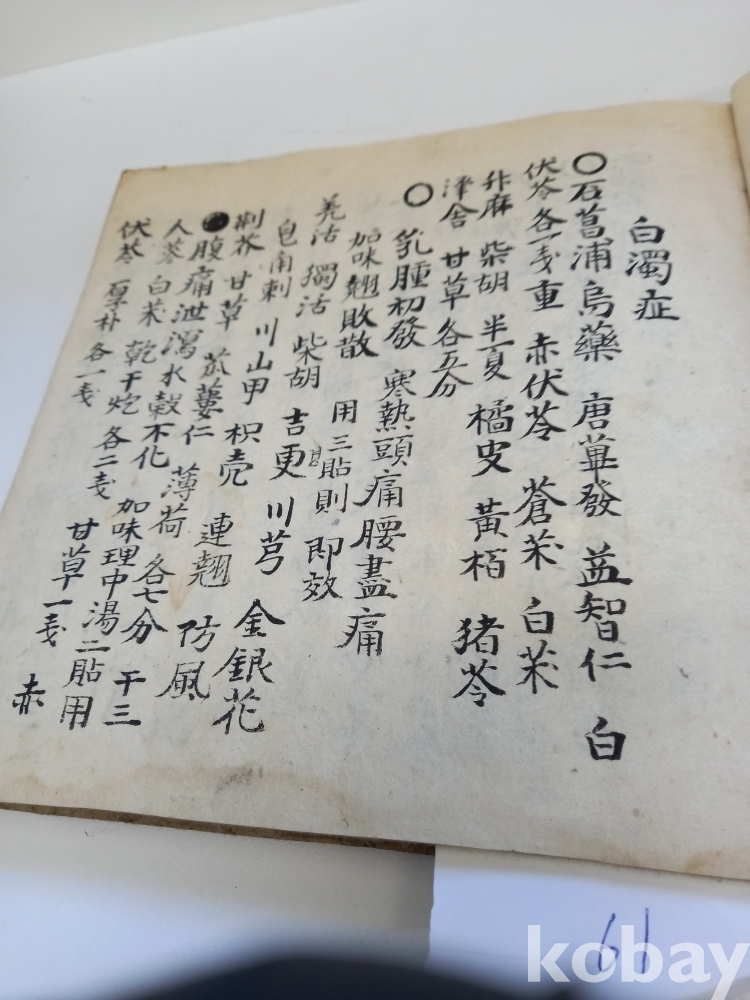 白濁症
○石菖浦烏藥 唐萆發 益智仁 白
伏苓各一戔重 赤伏苓 蒼朮 白朮
升麻 柴胡 半夏 橘皮 黃栢 猪苓
澤舍 甘草各五分
○乳腫初發 寒熱頭痛腰盡痛
加味翹敗散 用三貼則即效
羌活 獨活 柴胡 吉更 川芎 金銀花
皂角刺 川山甲 枳壳 連翹 防風
荊芥 甘草 苽蔞仁 薄荷 各七分 干三
●腹痛泄瀉水穀不化 加味理中湯二貼用
人蔘 白朮 乾干炮 各二戔 甘草一戔 赤
伏苓 厚朴 各一戔
61
kobay